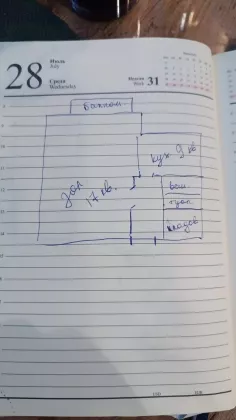 28
Июль
July
Среда
Wednesday
Неделя
Week 31
Балкон
кух. 9 кв
зал
17 кв.
ван
туал
кладов